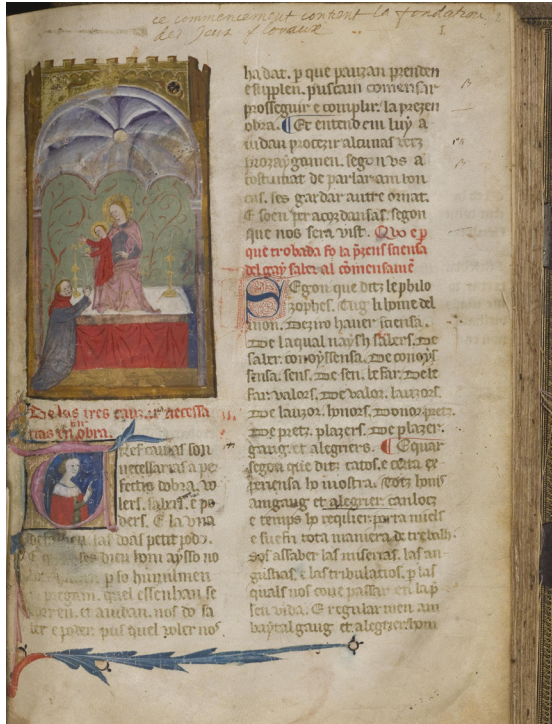 ce commencement contient la fondation
des Jeux floraux
I
De las tres cauzas necessa
rias en obra.
Tres cauzas son
necessarias a per
fectio dobra. vo
lers. sabers. e po
ders. E la una
petit podo.
E dieu hom aysso no
pso humilmen
pregam. quel essenhan se
et aiudan. nos do sa
ber e poder. pus quel voler nos
ha dat. p que puazan prenden
e supplen. puscam comensar
prosseguir e complir. la prezen
obra. Et entendem luy a
iudan procezir alcunas vetz
prozaygamen. segon us a
costumat de parlar am bon
cas. ses gardar autre ornat.
E soen per acordansas. segon
que nos sera vist. Quo e p
que trobada fo la prezens sciensa
del gay saber al comensame
Segon que ditz le philo
zophes. Tug li home del
mon. Deziro haver sciensa.
De la qual naysh sabers. De
saber. conoyssensa. De conoys
sensa. sens. De sen. be far. De be
far. valors. De valor. lauzors.
De lauzor. honors. Donor. pretz.
De pretz. plazers. De plazer.
gaug. et alegriers. E quar
segon que ditz catos. e certa ex
periensa ho mostra. Totz hom
am gaug et alegrier. can locz
e temps ho requier. porta miels
e suefri tota maniera de trebalh.
Sos assaber las miserias. las an
gustias. e las tribulatios. p las
quals nos cove passar en la p
sen vida. E regularmen am
baytal gaug et alegrier. hom